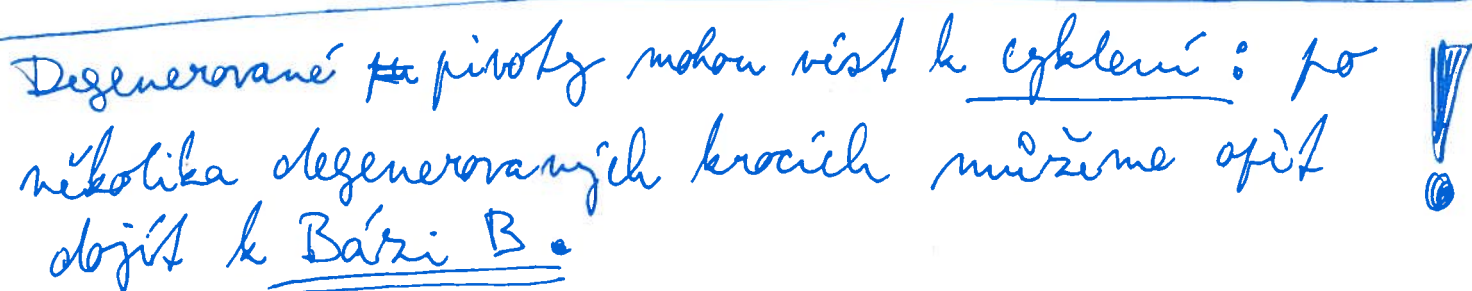 Degenerované pivoty mohou vést k cyklení : po
několika degenerovaných krocích můžeme opět
dojít k Bázi B. !